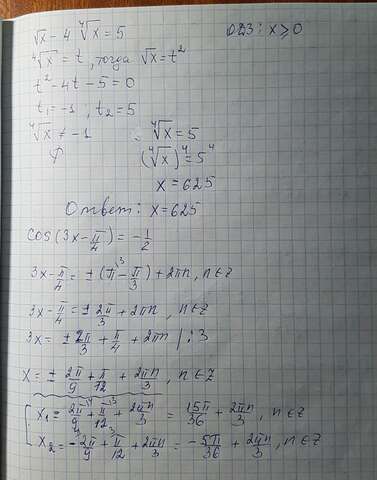 √x - 4 ⁴√x = 5 ОДЗ: x ⩾ 0
⁴√x = t, тогда √x = t²
t² - 4t - 5 = 0
t₁ = -1, t₂ = 5
⁴√x ≠ -1 ⁴√x = 5
∅ (⁴√x)⁴ = 5⁴
x = 625
Ответ: x = 625
cos(3x - π/4) = -1/2
3x - π/4 = ±(π - π/3) + 2πn, n ∈ Z
3x - π/4 = ± 2π/3 + 2πn, n ∈ Z
3x = ± 2π/3 + π/4 + 2πn | : 3
x = ± 2π/9 + π/12 + 2πn/3, n ∈ Z
x₁ = 2π/9 + π/12 + 2πn/3 = 15π/36 + 2πn/3, n ∈ Z
x₂ = - 2π/9 + π/12 + 2πn/3 = - 5π/36 + 2πn/3, n ∈ Z